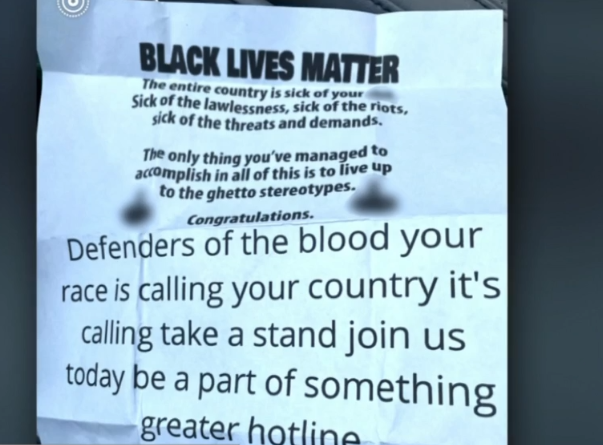 BLACK LIVES MATTER
The entire country is sick of your
Sick of the lawlessness, sick of the riots,
sick of the threats and demands.
The only thing you've managed to
accomplish in all of this is to live up
to the ghetto stereotypes.
Congratulations.
Defenders of the blood your
race is calling your country it's
calling take a stand join us
today be a part of something
greater hotline